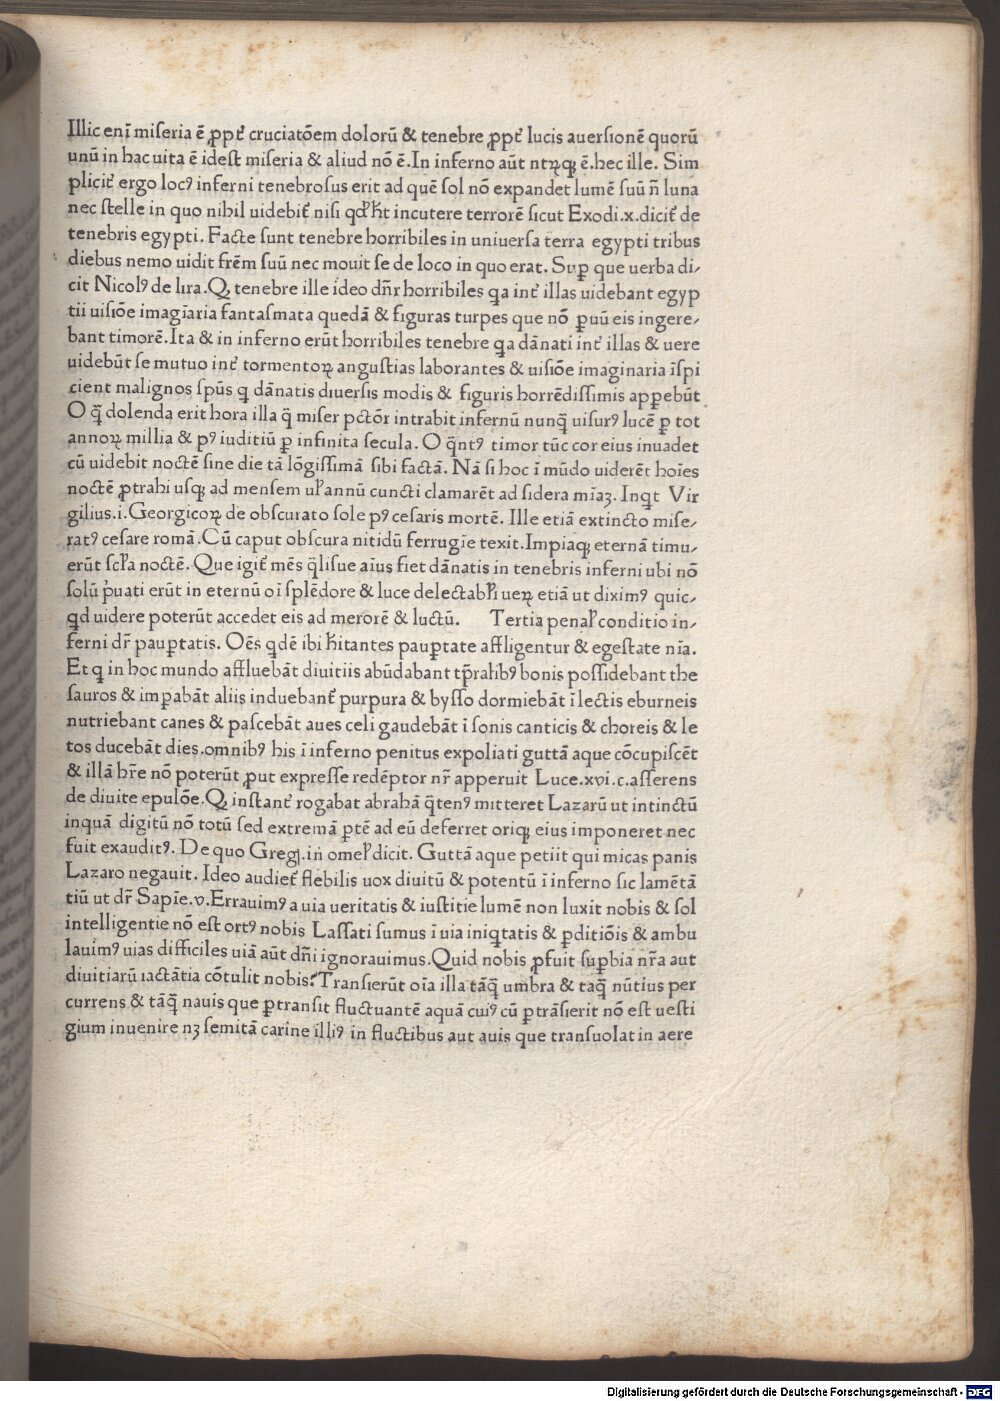 Illic enī miſeria ē ꝓpt᷑ cruciatōem dolorū & tenebre ꝓpt᷑ lucis auerſionē quorū
unū in hac uita ē ideſt miſeria & aliud nō ē.In inferno aūt ntꝝqꝫ ē.hec ille. Sim
plicit᷑ ergo locꝰ inferni tenebroſus erit ad quē ſol nō expandet lumē ſuū n̄ luna
nec ſtelle in quo nihil uidebit᷑ niſi qd̓ h̓t incutere terrorē ſicut Exodi.x.dicit᷑ de
tenebris egypti. Facte ſunt tenebre horribiles in uniuerſa terra egypti tribus
diebus nemo uidit frēm ſuū nec mouit ſe de loco in quo erat. Suꝑ que uerba di⸗
cit Nicolꝰ de lira.Qꝫ tenebre ille ideo dn̄r horribiles qa int᷑ illas uidebant egyp
tii uiſiōe imagīaria fantaſmata quedā & figuras turpes que nō ꝑuū eis ingere⸗
bant timorē.Ita & in inferno erūt horribiles tenebre qa dānati int᷑ illas & uere
uidebūt ſe mutuo int᷑ tormentoꝝ anguſtias laborantes & uiſiōe imaginaria īſpi
cient malignos ſpūs q dānatis diuerſis modis & figuris horrēdiſſimis apꝑebūt
O q̄ dolenda erit hora illa q̄ miſer pctōr intrabit infernū nunq̄ uiſurꝰ lucē ꝑ tot
annoꝝ millia & pꝰ iuditiū ꝑ infinita ſecula. O q̄ntꝰ timor tūc cor eius inuadet
cū uidebit noctē ſine die tā lōgiſſimā ſibi factā. Nā ſi hoc ī mūdo uiderēt hoīes
noctē ꝓtrahi uſqꝫ ad menſem ul̓ annū cuncti clamarēt ad ſidera mīaꝫ. Inqt Vir
gilius.i.Georgicoꝝ de obſcurato ſole pꝰ ceſaris mortē. Ille etiā extincto miſe⸗
ratꝰ ceſare romā.Cū caput obſcura nitidū ferrugīe texit.Impiaqꝫ eternā timu⸗
erūt ſcl̓a noctē. Que igit᷑ mēs q̄liſue aīus fiet dānatis in tenebris inferni ubi nō
ſolū p̓uati erūt in eternū oī ſplēdore & luce delectabl̓i ueꝝ etiā ut diximꝰ quic⸗
qd uidere poterūt accedet eis ad merorē & luctū. Tertia penal̓ conditio in⸗
ferni dr̄ pauꝑtatis. Oēs qdē ibi h̓itantes pauꝑtate affligentur & egeſtate nīa.
Et q in hoc mundo affluebāt diuitiis abūdabant tꝑalibꝰ bonis poſſidebant the
ſauros & imꝑabāt aliis induebant᷑ purpura & byſſo dormiebāt ī lectis eburneis
nutriebant canes & paſcebāt aues celi gaudebāt ī ſonis canticis & choreis & le
tos ducebāt dies.omnibꝰ his ī inferno penitus expoliati guttā aque cōcupiſcēt
& illā hr̄e nō poterūt ꝓut expreſſe redēptor nr̄ apperuit Luce.xvi.c.aſſerens
de diuite epulōe.Qꝫ inſtant᷑ rogabat abrahā q̄tenꝰ mitteret Lazarū ut intinctū
inquā digitū nō totū ſed extremā ꝑtē ad eū deferret oriqꝫ eius imponeret nec
fuit exauditꝰ. De quo Greg.in omel̓ dicit. Guttā aque petiit qui micas panis
Lazaro negauit. Ideo audiet᷑ flebilis uox diuitū & potentū ī inferno ſic lamētā
tiū ut dr̄ Sapīe.v.Errauimꝰ a uia ueritatis & iuſtitie lumē non luxit nobis & ſol
intelligentie nō eſt ortꝰ nobis Laſſati ſumus ī uia iniqtatis & ꝑditiōis & ambu
lauimꝰ uias difficiles uiā aūt dn̄i ignorauimus.Quid nobis ꝓfuit ſuꝑbia nr̄a aut
diuitiarū iactātia cōtulit nobis?Tranſierūt oīa illa tāq̄ umbra & taq̄ nūtius per
currens & tāq̄ nauis que ꝑtranſit fluctuantē aquā cuiꝰ cū ꝑtrāſierit nō eſt ueſti
gium inuenire nꝫ ſemitā carine illiꝰ in fluctibus aut auis que tranſuolat in aere
Digitalisierung gefördert durch die Deutsche Forschungsgemeinschaft - DFG